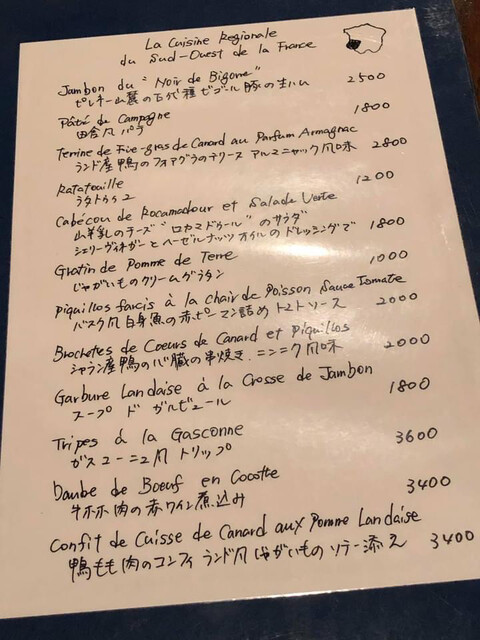 La Cuisine Regionale
du Sud-Ouest de la France
Jambon du "Noir de Bigorre" 2500
ピレネー山麓の古代種ビゴール豚の生ハム
Pâté de Campagne 1800
田舎風パテ
Terrine de Foie-gras de Canard au Parfum Armagnac 2800
ランド産鴨のフォアグラのテリーヌ アルマニャック風味
Ratatouille 1200
ラタトゥイユ
Cabécou de Rocamadour et Salade Verte
山羊乳のチーズ "ロカマドゥール" のサラダ
シェリーヴィネガーとヘーゼルナッツオイルのドレッシングで 1800
Gratin de Pomme de Terre 1000
じゃがいものクリームグラタン
Piquillos farcis à la chair de Poisson Sauce Tomate
バスク風白身魚の赤ピーマン詰め トマトソース 2000
Brochetes de Coeurs de Canard et Piquillos
シャラン産鴨の心臓の串焼き、ニンニク風味 2000
Garbure Landaise à la Crosse de Jambon
スープ ド ガルビュール 1800
Tripes à la Gasconne
ガスコーニュ風 トリップ 3600
Daube de Boeuf en Cocotte
牛ホホ肉の赤ワイン煮込み 3400
Confit de Cuisse de Canard aux Pomme Landaise
鴨もも肉のコンフィ ランド風じゃがいものソテー添え 3400